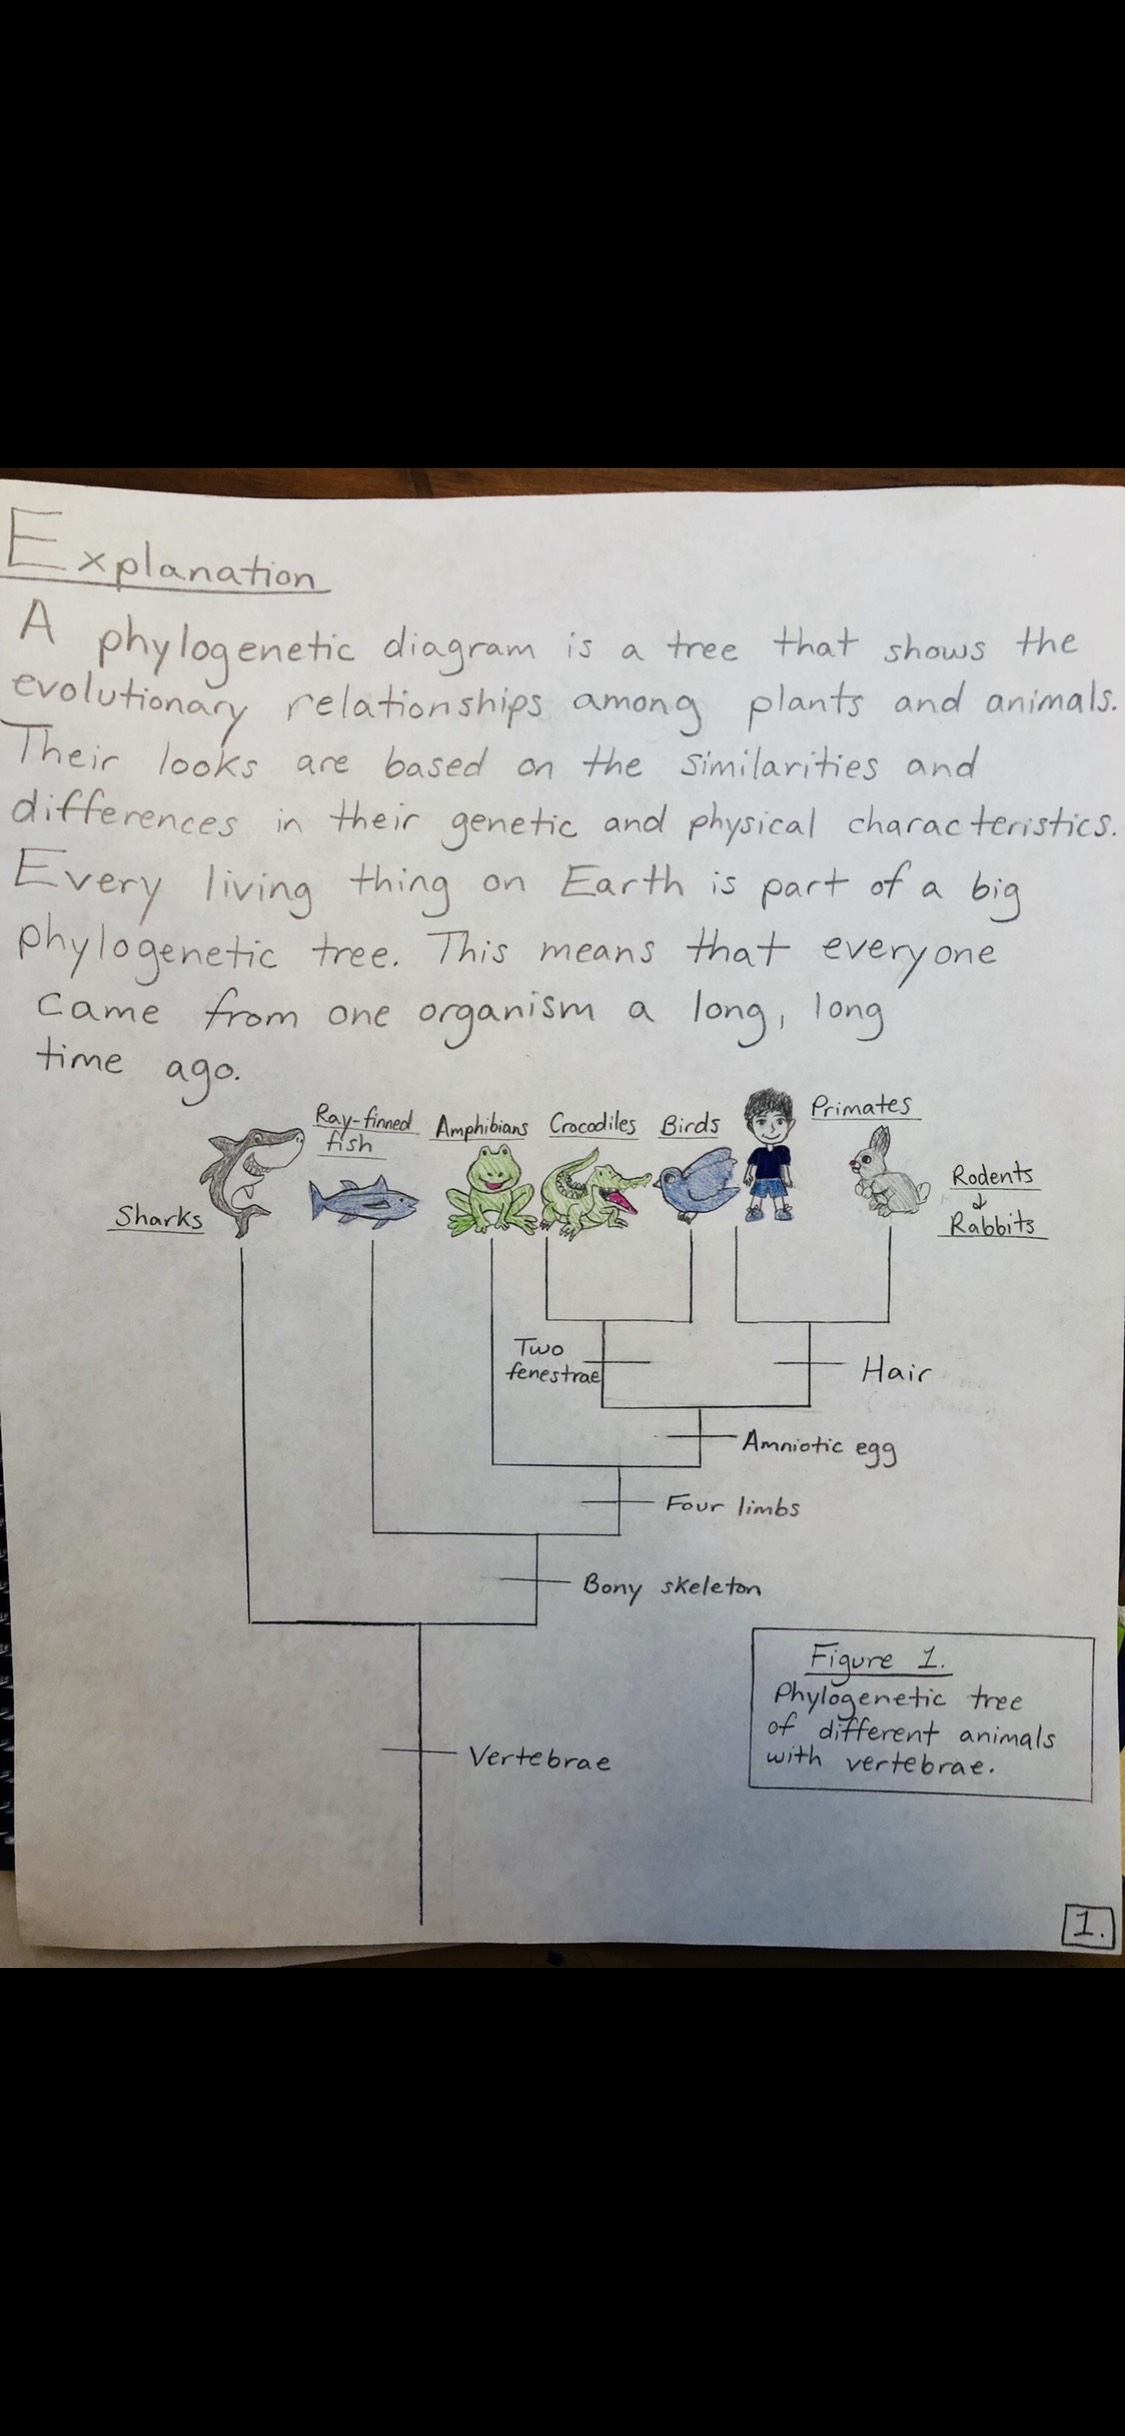 Explanation
A phylogenetic diagram is a tree that shows the
evolutionary relationships among plants and animals.
Their looks are based on the similarities and
differences in their genetic and physical characteristics.
Every living thing on Earth is part of a big
phylogenetic tree. This means that everyone
came from one organism a long, long
time ago.
Sharks
Ray-finned
fish
Amphibians
Crocodiles
Birds
Primates
Rodents
&
Rabbits
Two
fenestrae
Hair
Amniotic egg
Four limbs
Bony skeleton
Vertebrae
Figure 1.
Phylogenetic tree
of different animals
with vertebrae.
1.